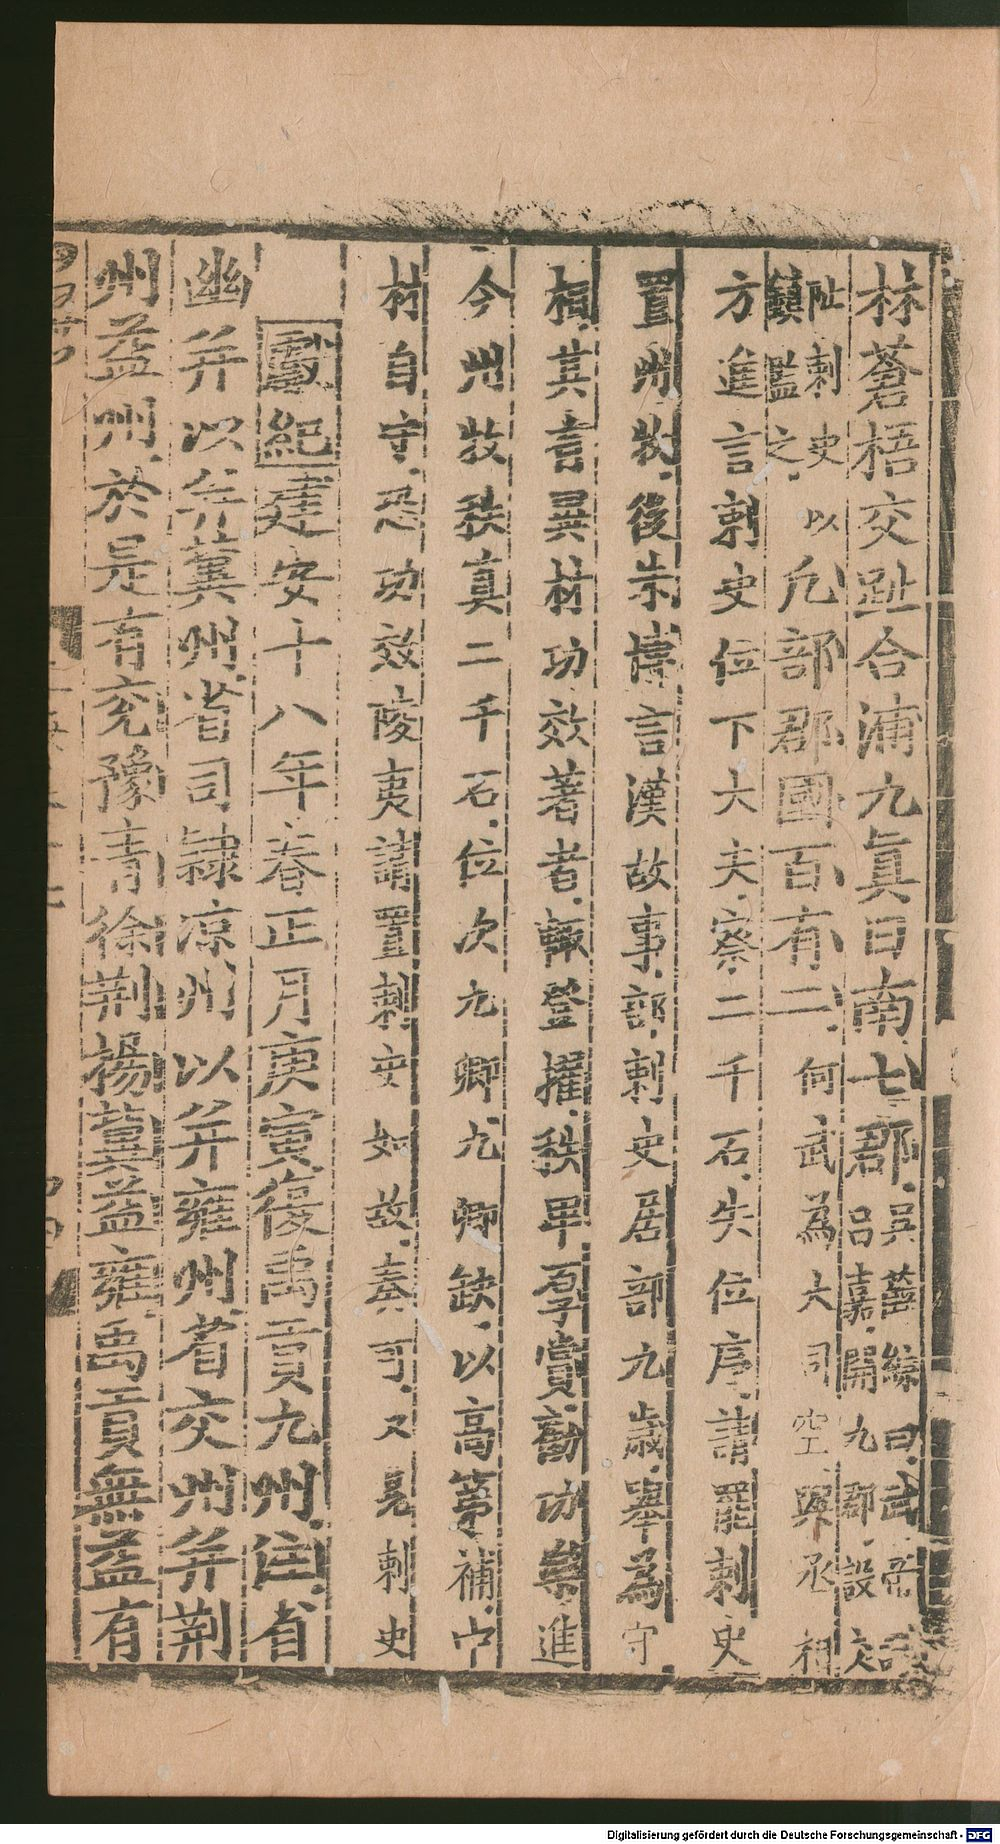 林蒼梧交趾合浦九眞日南七郡呂嘉開九郡設交
吳薛綜曰武帝誅
趾刺史以
鎮監之
凡部郡國百有二何武為大司空與丞相
方進言刺史位下大夫察二千石失位序請罷刺史
置州牧後朱博言漢故事部刺史居部九歲舉為守
相其言異材功效著者輒登擢秩卑厚賞勸功樂進
今州牧秩真二千石位次九卿九卿缺以高第補中
材自守恐功效陵夷請置刺史如故奏可又晃刺史
獻紀建安十八年春正月庚寅復禹貢九州注省
幽并以并冀州省司隸凉州以并雍州省交州并荆
州益州於是有兖豫青徐荆楊冀益雍禹貢無益有
Digitalisierung gefördert durch die Deutsche Forschungsgemeinschaft - DFG